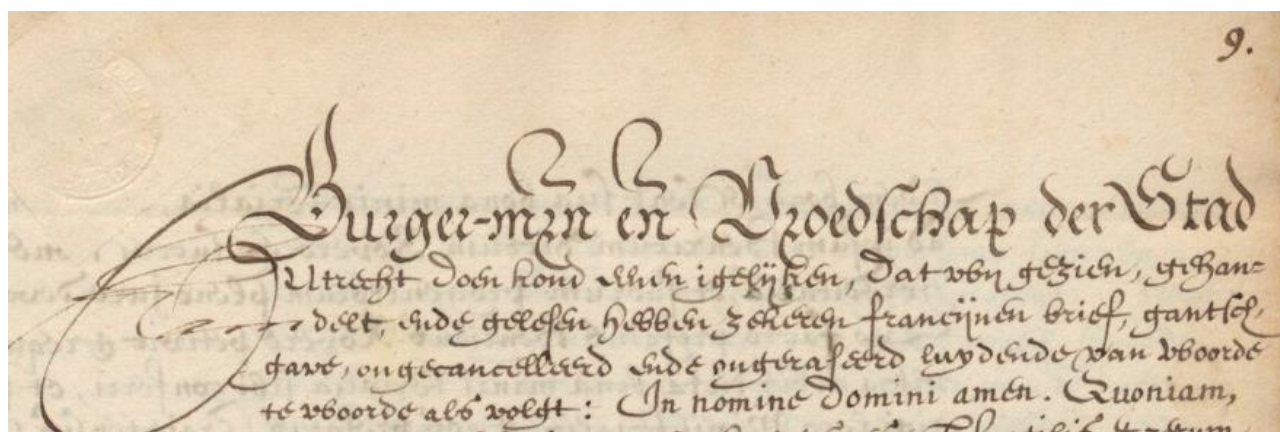 9.
Burger-mrn en Vroedschap der Stad
Utrecht doen kond eenen igelijken, dat wij gezien, gehan-
delt, ende gelesen hebben zekeren francijnen brief, gantsch,
gave, ongecancelleerd ende ongeraseerd luydende van woorde
te woorde als volgt: In nomine Domini amen. Quoniam,